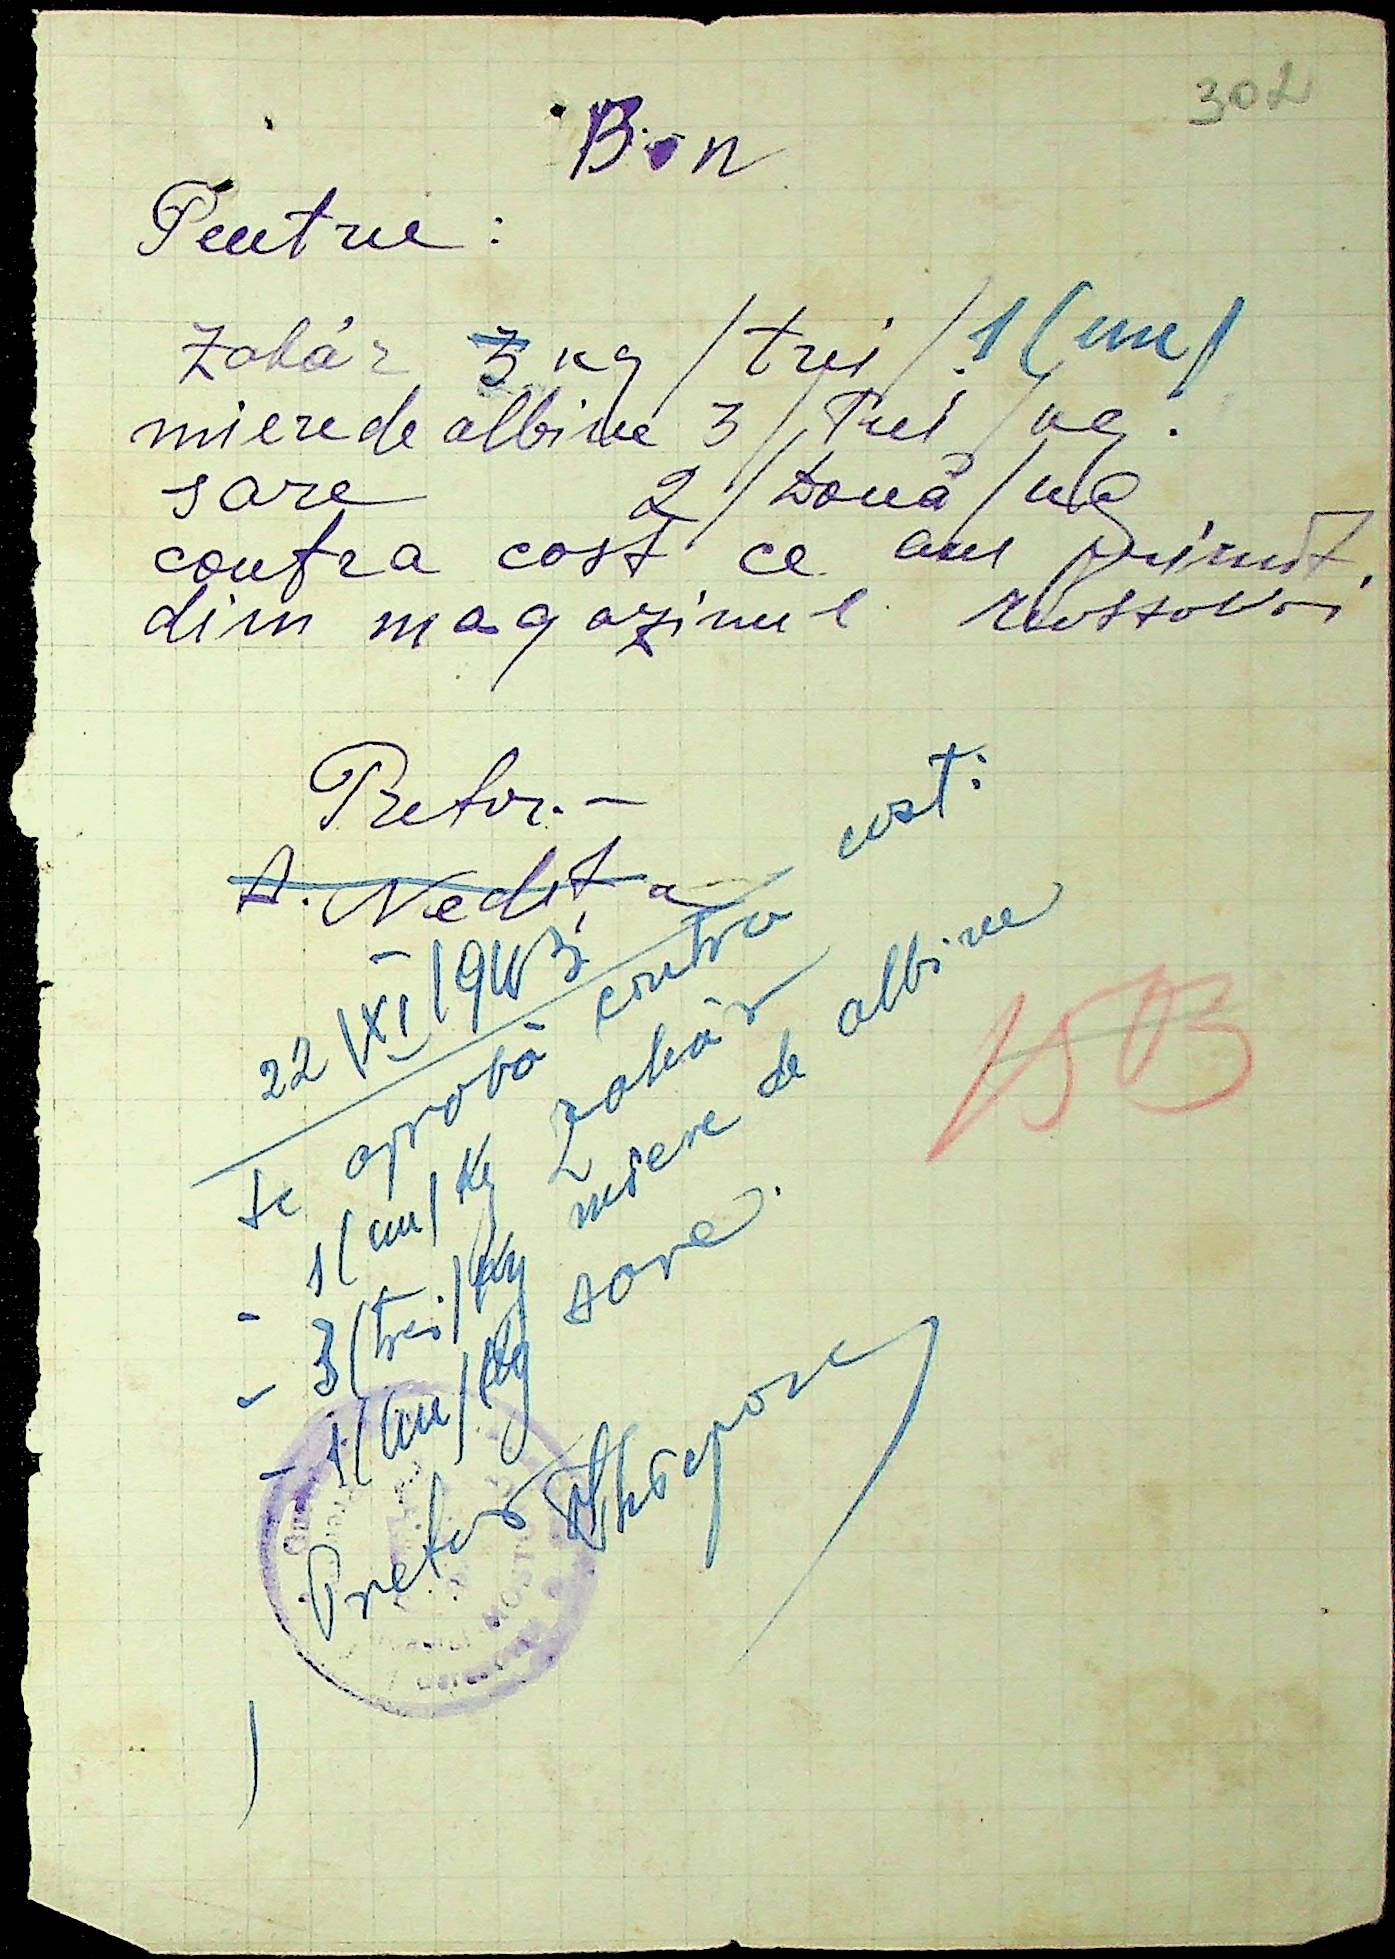 302
Bon
Pentru:
Zahăr 3 kg /trei/. 1 (un)
miere de albine 3 /Trei/ kg.
sare 2 /Două/ kg
contra cost ce am primit.
dim magazinul
Pretor.-
A. Nedița
22/XI/1943
Se aprobă contra cost:
- 1 (un) kg zahăr
- 3 (trei) kg miere de albine
- 1 (un) kg sare.
Pretor
1503